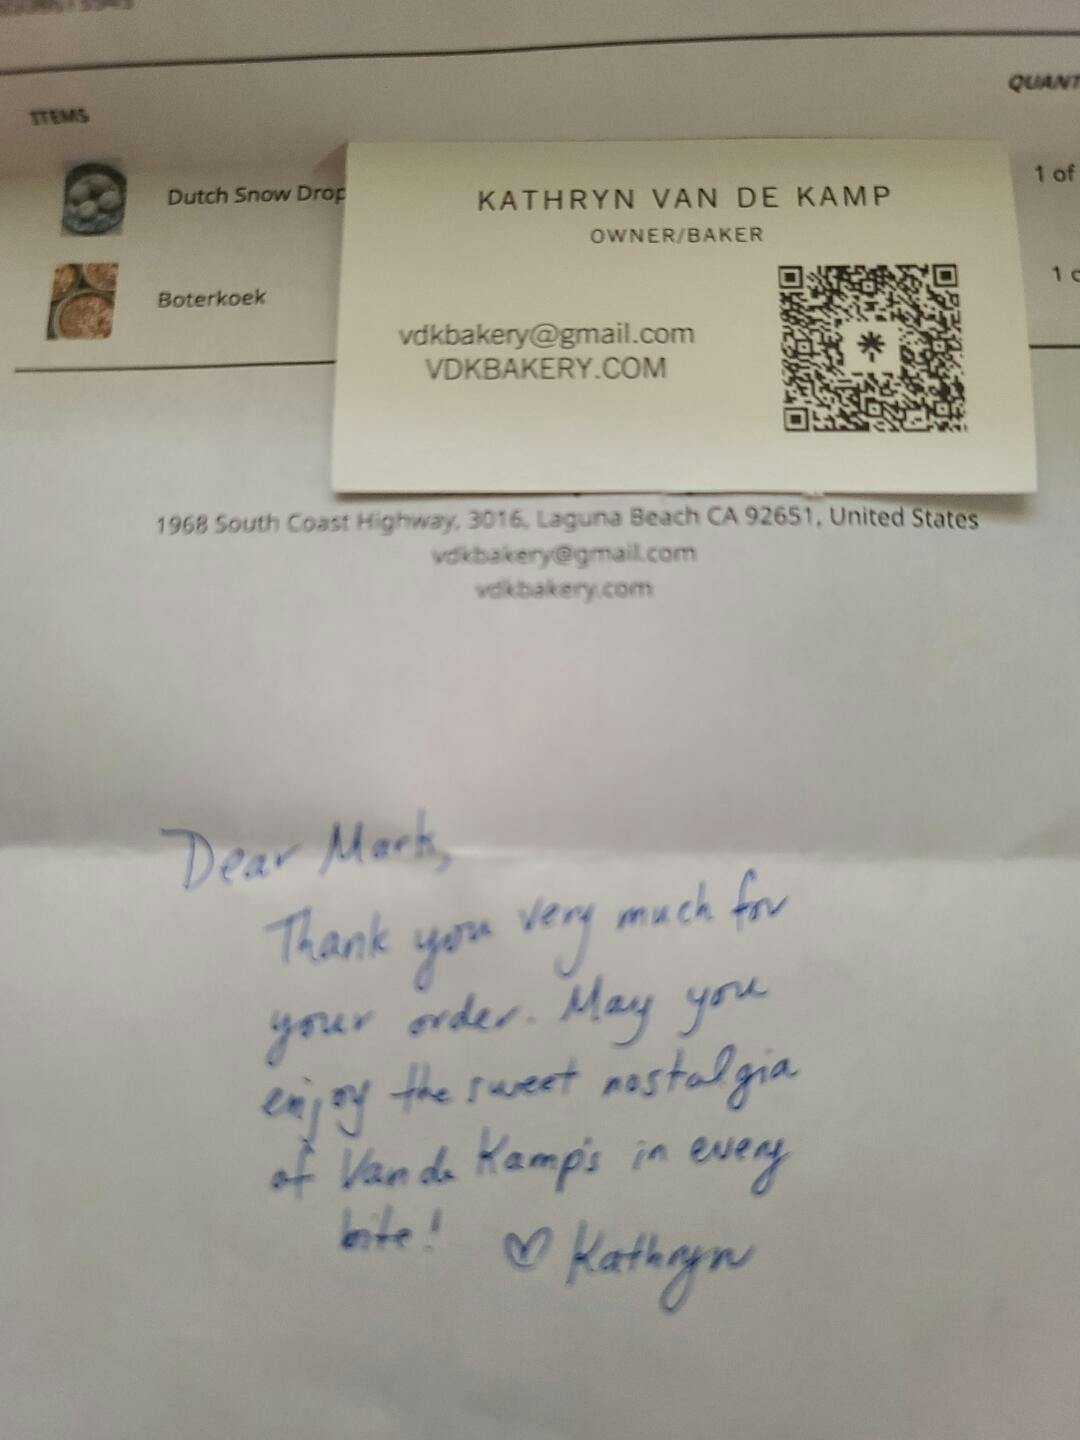 ITEMS
QUANT
Dutch Snow Drop
1 of
Boterkoek
1
KATHRYN VAN DE KAMP
OWNER/BAKER
vdkbakery@gmail.com
VDKBAKERY.COM
1968 South Coast Highway, 3016, Laguna Beach CA 92651, United States
vdkbakery@gmail.com
vdkbakery.com
Dear Mark,
Thank you very much for
your order. May you
enjoy the sweet nostalgia
of Van de Kamp's in every
bite! ♡ Kathryn